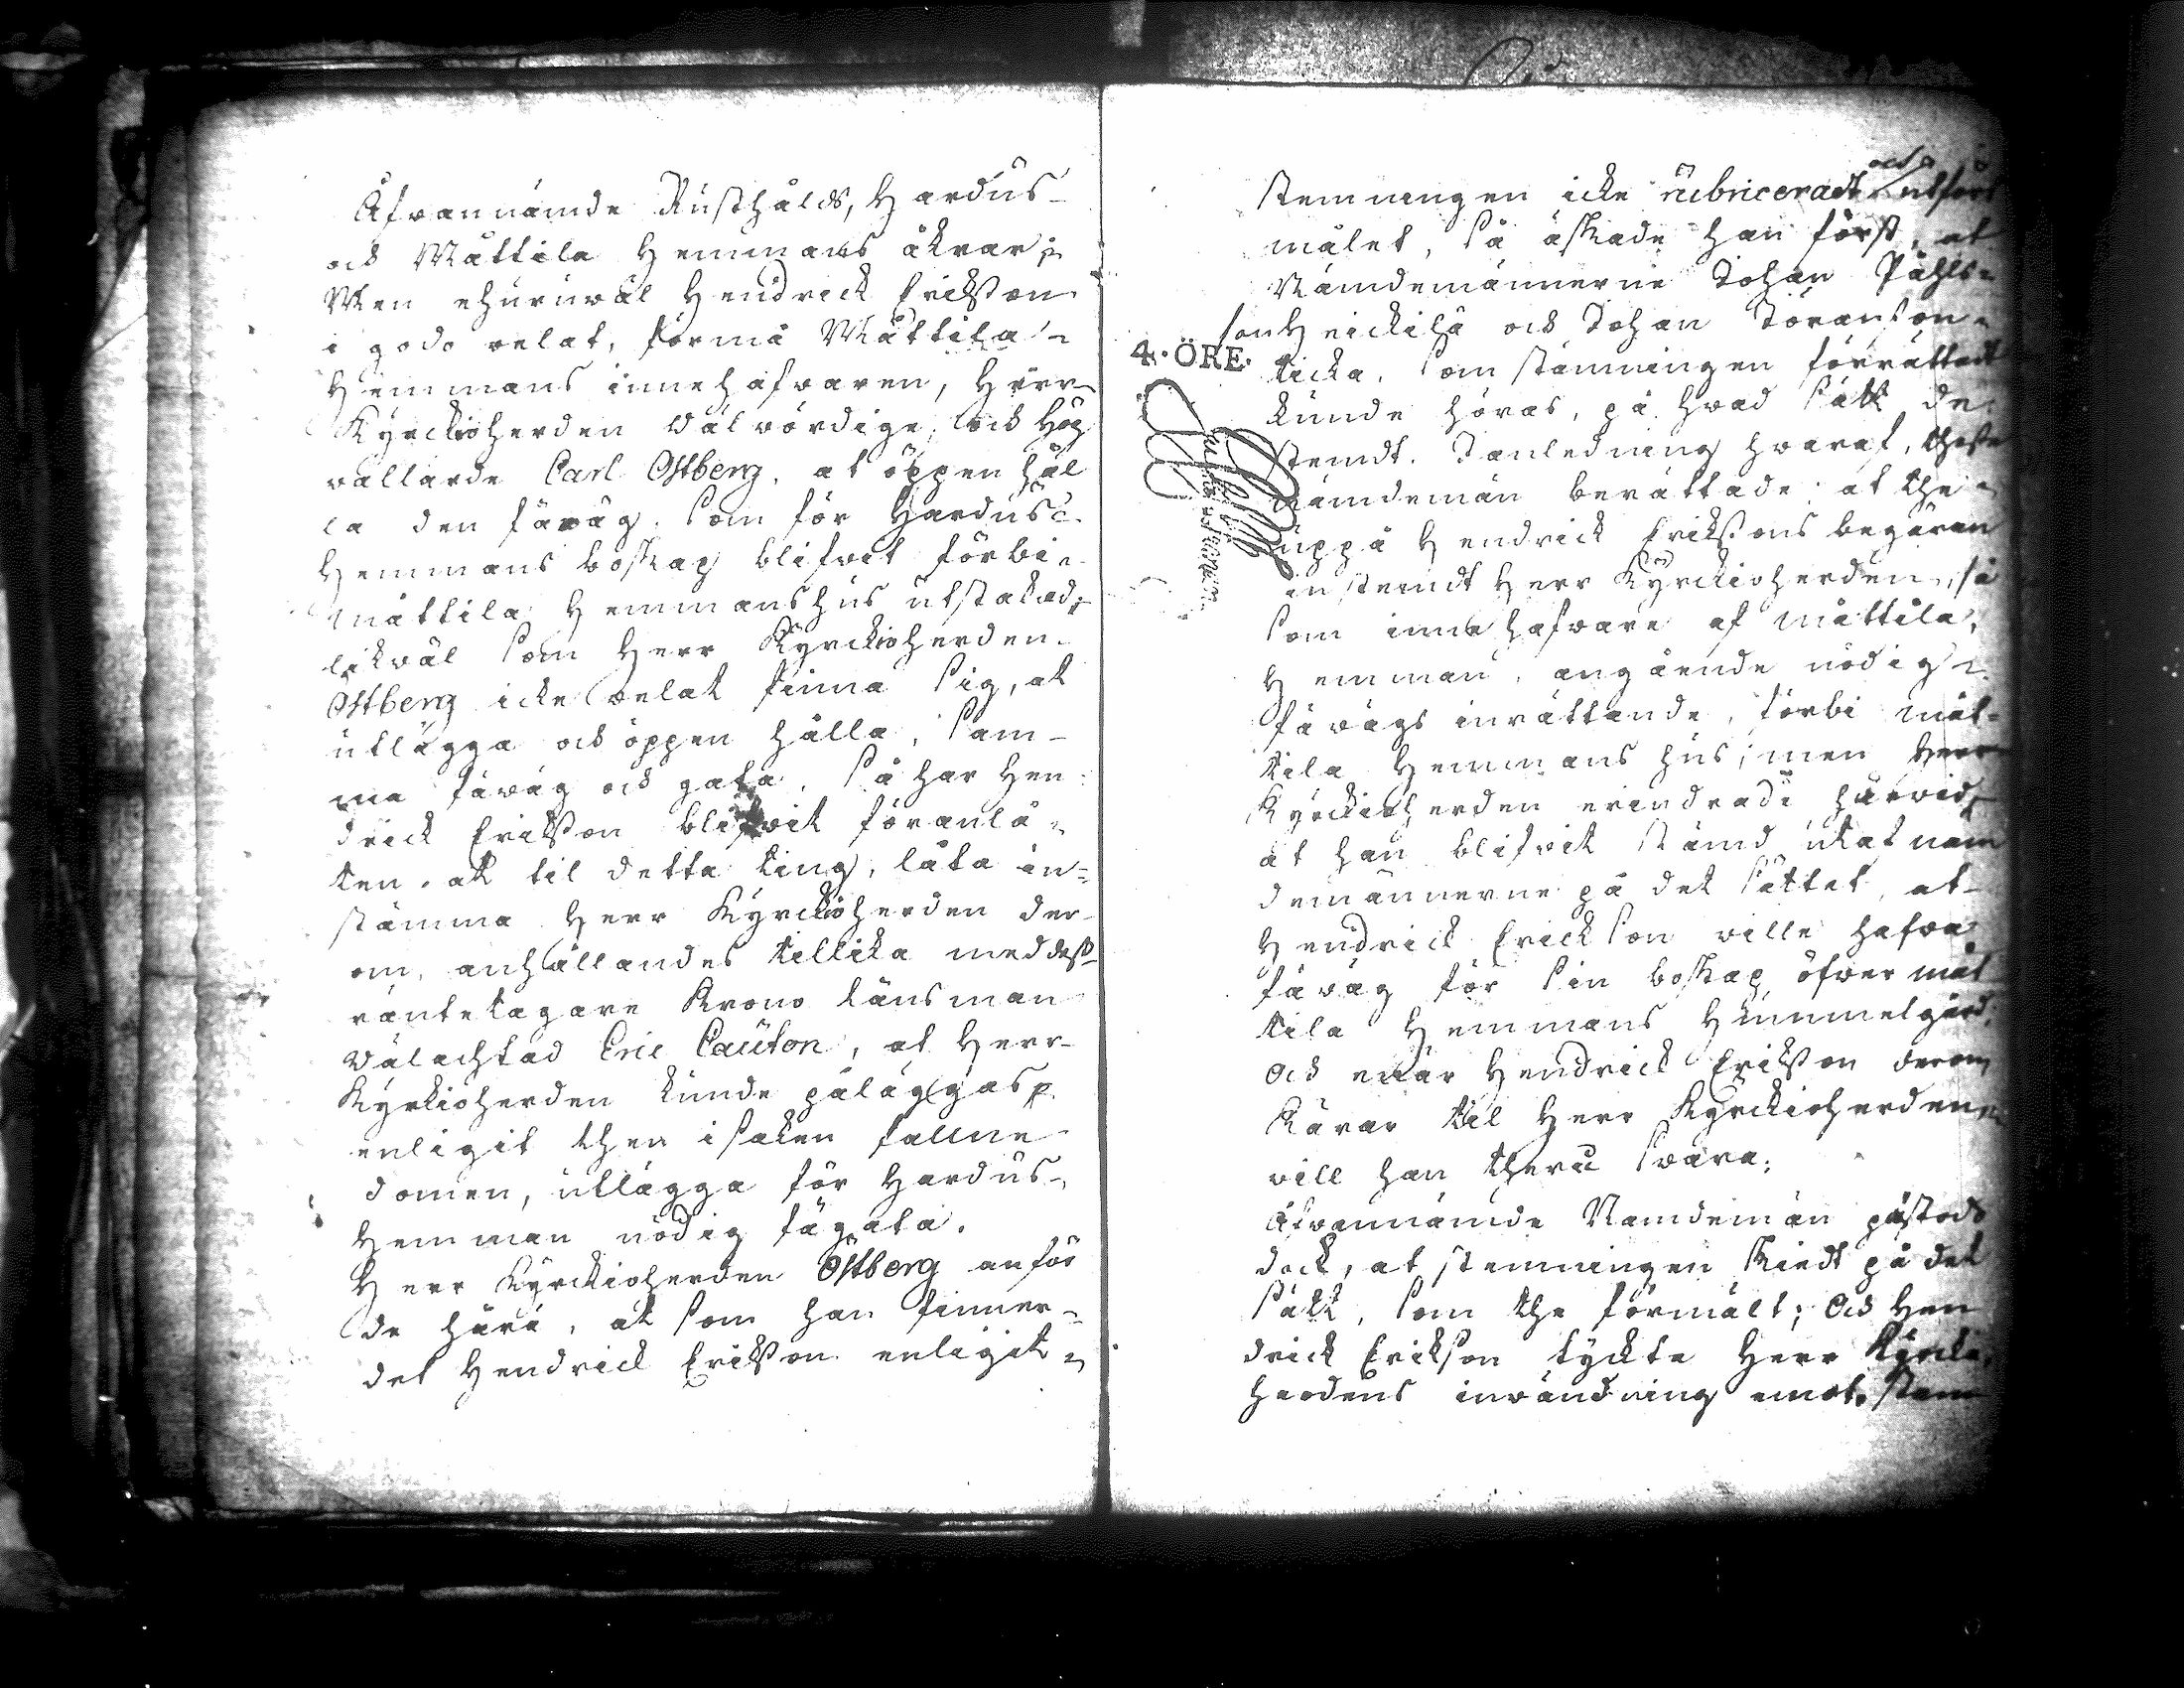 Åfvannämde Rusthålds, Hardus-
och Mattila Hemmans åkrar;
Men ehuruwäl Hendrick Erikßon
i godo velat, förmå Mattila
Hemmans innehafvaren, Herr
Kyrckioherden Wälwördige, och Hög
wällärde Carl Ostberg, at öppen hål
la den fäwäg, som för Hardus
Hemmans boskap blifvit förbi
Mattila Hemmans hus utstakad,
likwäl som Herr Kyrckioherden
Ostberg icke velat finna sig, at
utlägga och öppen hålla, sam-
ma fäwäg och gata. så har Hen-
drick Erikßon blifwit föranlå-
ten, att til detta ting, låta in=
stämma Herr Kyrckioherden der-
om, anhållandes tillika med deß
räntetagare Krono länsman
Wälachtad Eric Cauton, at Herr
Kyrkioherden kunde påläggas
enligit then i saken fallne
domen, utlägga för Hardus
Hemman nödig fägata.
Herr Kyrckioherden Östberg anför
de härå, at som han finner
det Hendrick Erikßon enligit
stemningen icke rubriceradt och utfört
målet, så äskade han först, at
Nämdemännerne Johan Påhls-
son Heickilä och Johan
4. ÖRE.
ticka, som stämningen förrättadt
kunde höras, på hvad sätt de
stemdt. I anledning hvaraf, theße
Nämdemän berättade, at the
uppå Hendrick Erikßons begäran
instemdt Herr Kyrckioherden, så
som innehafvare af Mattila,
Hemman, angående nödig
fäwägs inrättande, förbi Mat-
tila Hemmans hus; men Herr
Kyrckioherden erindrade härwid,
at han blifvit stämd utaf näm
demännerne på det sättet, at
Hendrick Erickson ville hafva
fäwäg för sin boskap öfver Mat
tila Hemmans Hummelgård
och enär Hendrick Erikßon derom
kärar til Herr Kyrckioherden
vill han therå swara;
Åfvannämde Nämdemän påstodo
dock, at stemningen skiedt på det
sätt, som the förmält; och Hen
drick Erikson tyckte Herr Kyrckio
herdens inwändning emot stem